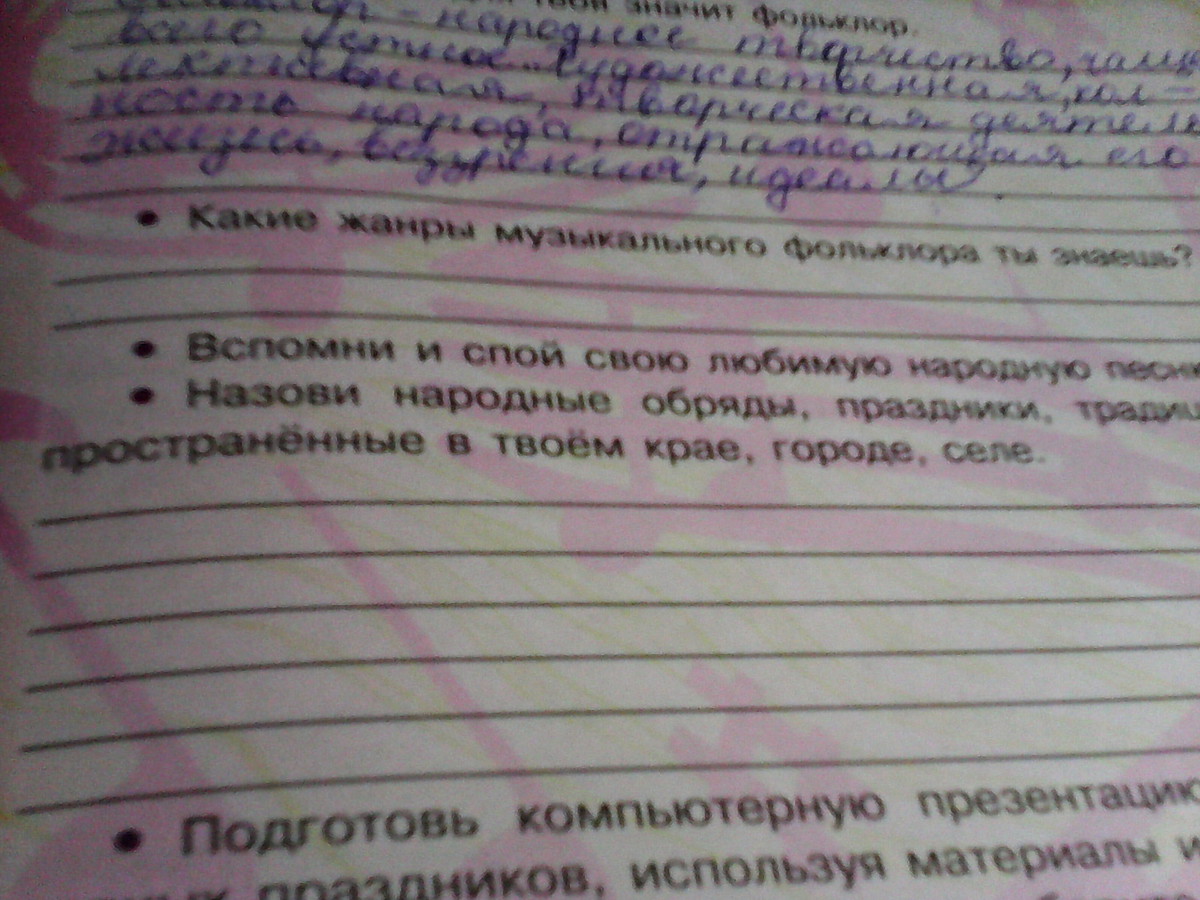 значит фольклор.
– народнее творчиство, чаще
всего устное. Художественная, кол-
лективная, творческая деятель
ность народа, отражающая его
жизнь, воззрения, идеалы.
• Какие жанры музыкального фольклора ты знаешь?
• Вспомни и спой свою любимую народную песн
• Назови народные обряды, праздники, традиц
пространённые в твоём крае, городе, селе.
• Подготовь компьютерную презентацию
праздников, используя материалы и